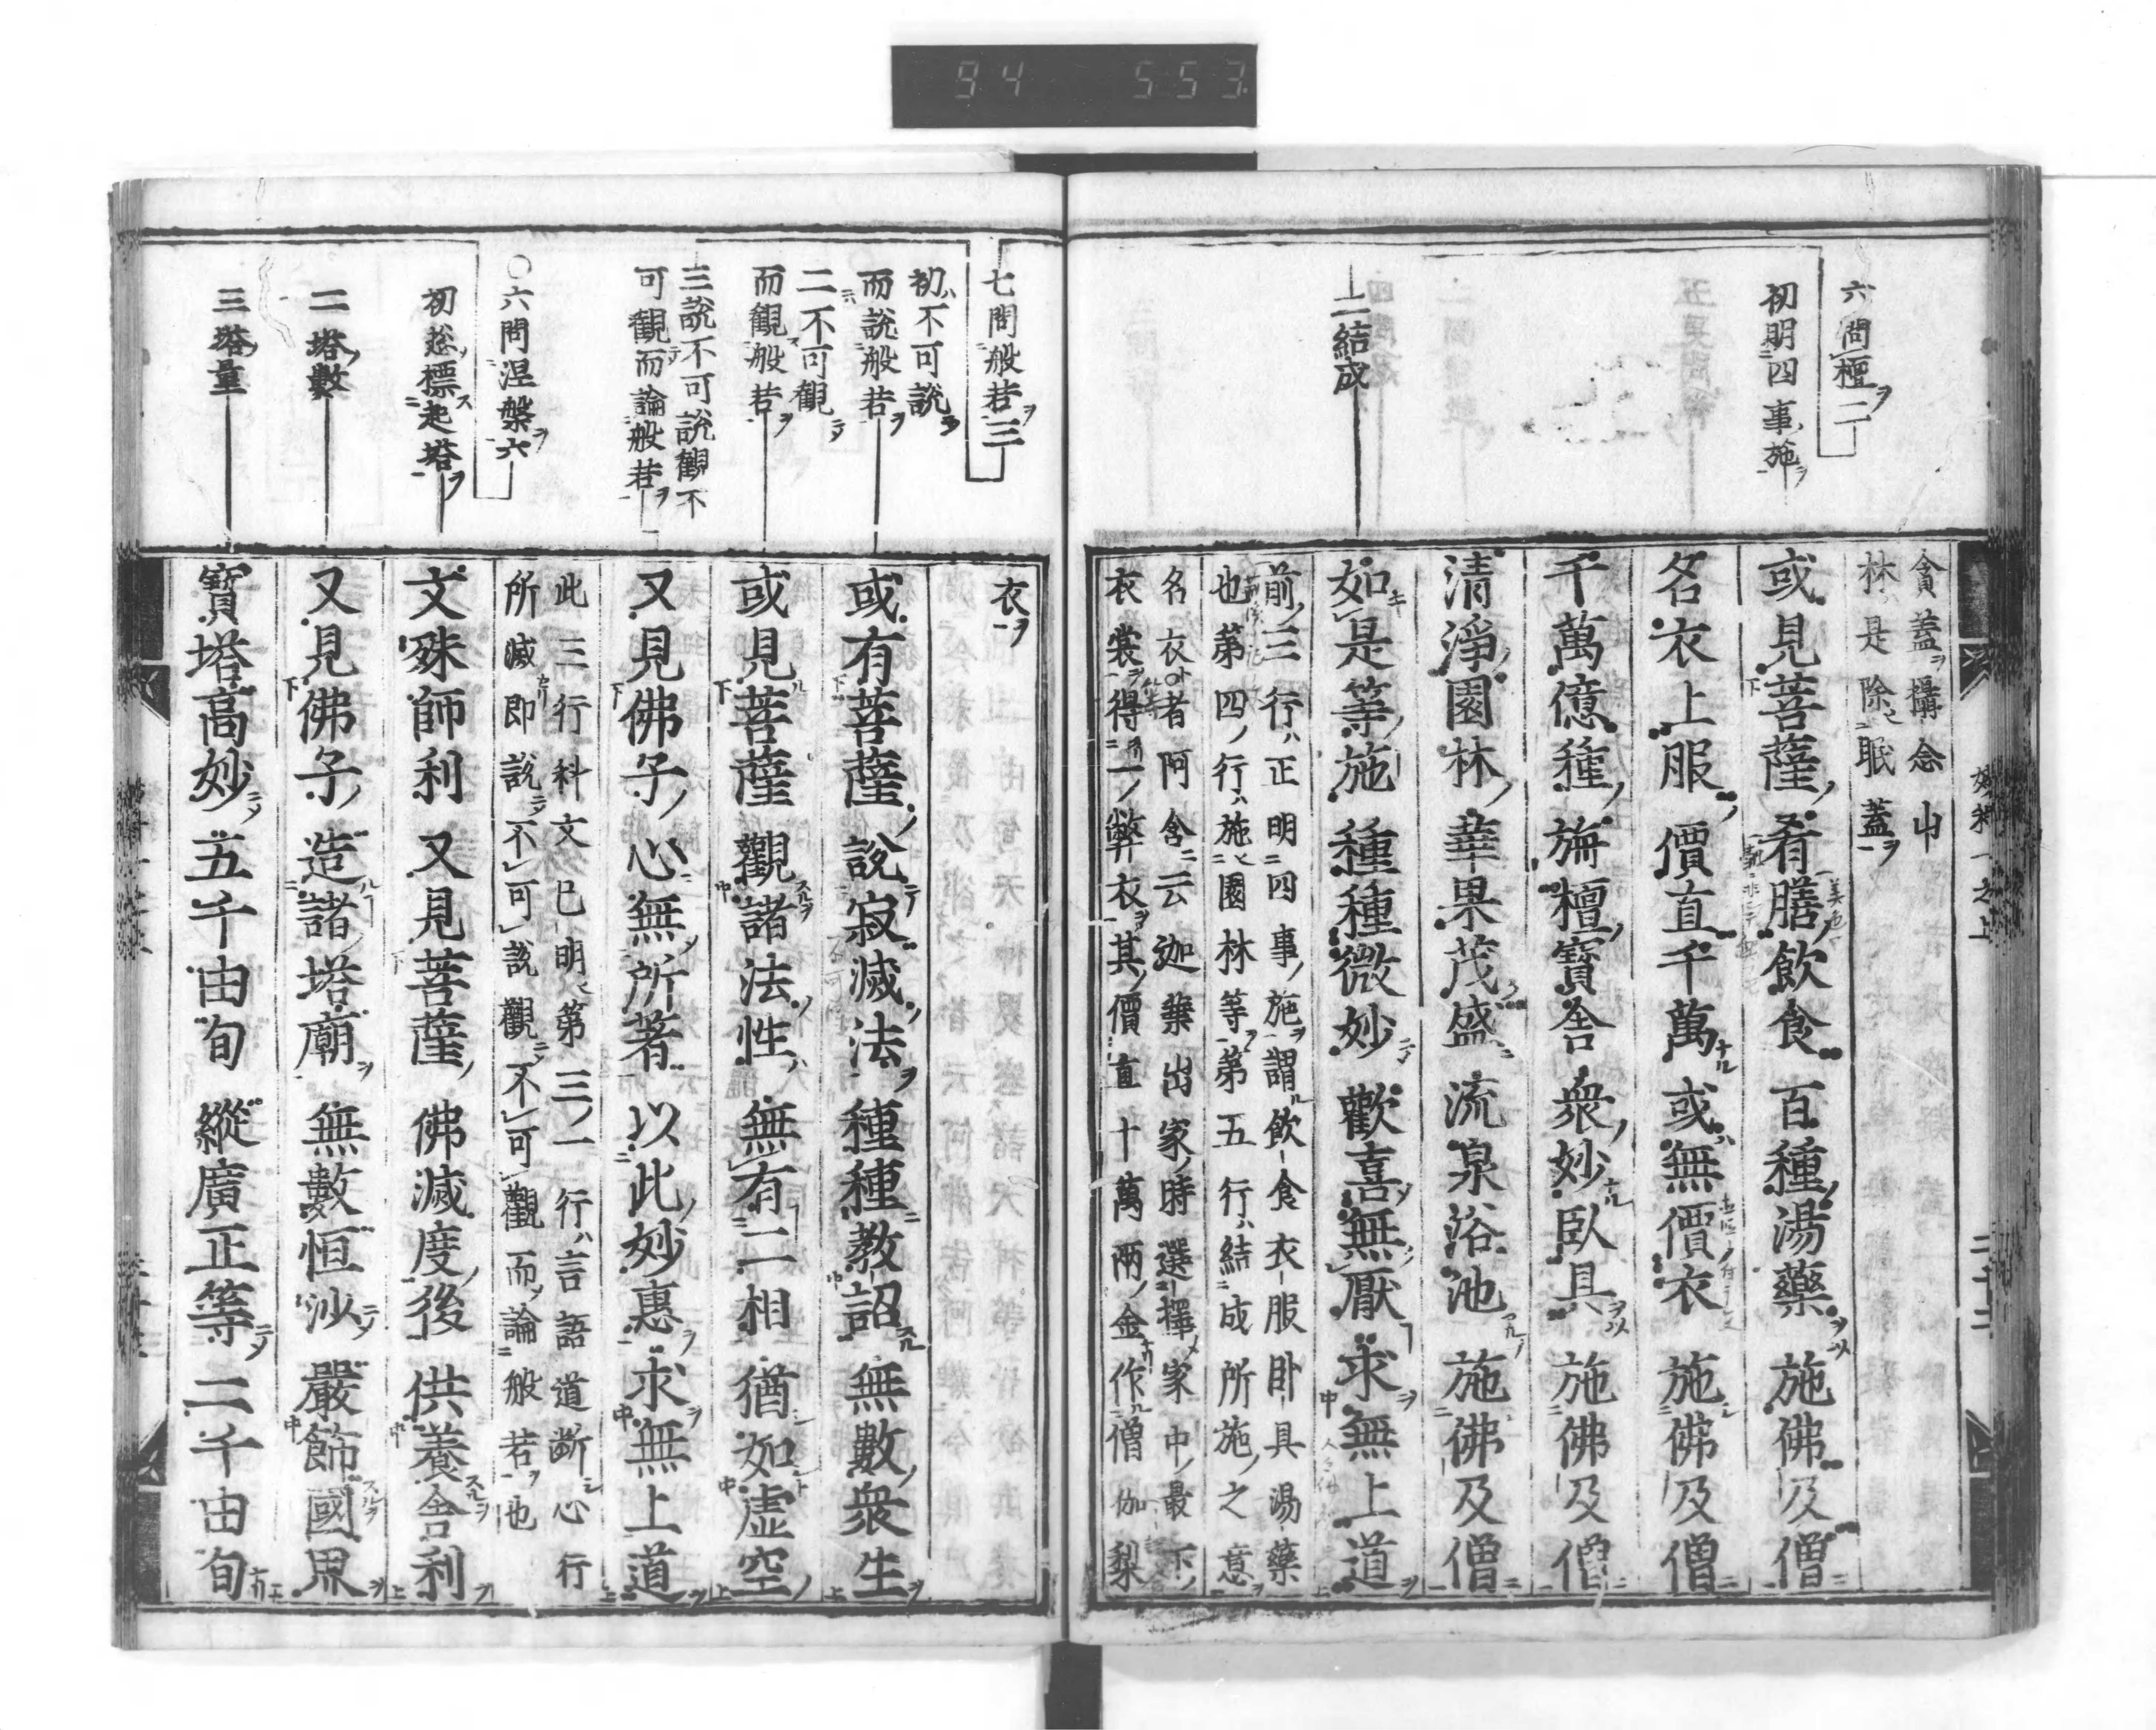 94 553
六問檀二
初明四事施
二結成
貪蓋攝念山
林是除眠蓋
或見菩薩肴膳飲食百種湯藥施佛及僧
名衣上服價直千萬或無價衣施佛及僧
千萬億種旃檀寶舍衆妙臥具施佛及僧
清淨園林華果茂盛流泉浴池施佛及僧
如是等施種種微妙歡喜無厭求無上道
前三行正明四事施謂飲食衣服卧具湯藥
也第四行施園林等第五行結成所施之意
名衣者阿含云迦葉出家時選擇家中最下
衣裳得一弊衣其價直十萬兩金作僧伽梨
七問般若三
初不可說
而說般若
二不可觀
而觀般若
三說不可說觀不
可觀而論般若
〇六問涅槃六
初總標起塔
二塔數
三塔量
衣
或有菩薩說寂滅法種種教詔無數衆生
或見菩薩觀諸法性無有二相猶如虛空
又見佛子心無所著以此妙惠求無上道
此三行科文已明第三一行言語道斷心行
所滅即說不可說觀不可觀而論般若也
文殊師利又見菩薩佛滅度後供養舍利
又見佛子造諸塔廟無數恒沙嚴飾國界
寶塔高妙五千由旬縱廣正等二千由旬